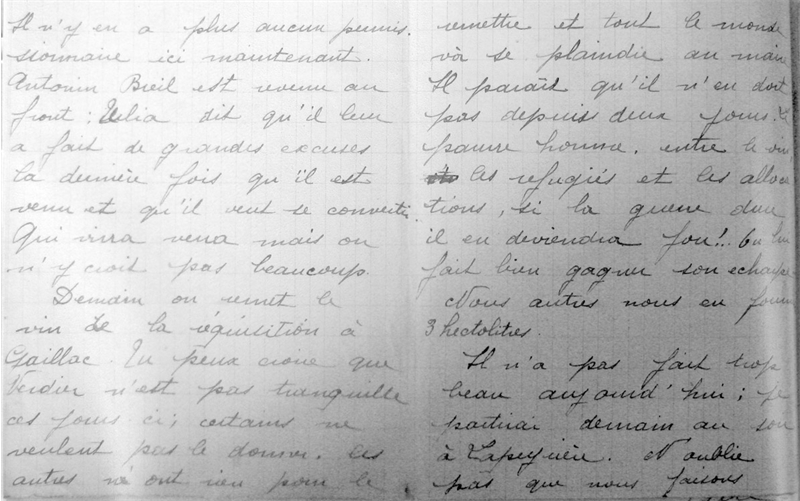 Il n'y en a plus aucun permis.
sionnaire ici maintenant.
Antonin Bieil est revenu au
front : Julia dit qu'il leur
a fait de grandes excuses
la dernière fois qu'il est
venu et qu'il veut se convertir
Qui vivra verra mais on
n'y croit pas beaucoup.
Demain on remet le
vin de la réquisition à
Gaillac. Tu peux croire que
Verdier n'est pas tranquille
ces jours ci ; certains ne
veulent pas le donner. les
autres n'é ont rien pour le
remettre et tout le monde
va se plaindre au maire
Il paraît qu'il n'en dort
pas depuis deux jours. Le
pauvre homme. entre le vin
les refugiés et les alloca
tions, si la guerre dure
il en deviendra fou !.. On lui
fait bien gagner son echarpe
Nous autres nous en fourn
3 hectolitres.
Il n'a pas fait trop
beau aujourd'hui ; je
partirai demain au soir
à Lapeyrière. N'oublie
pas que nous faisons